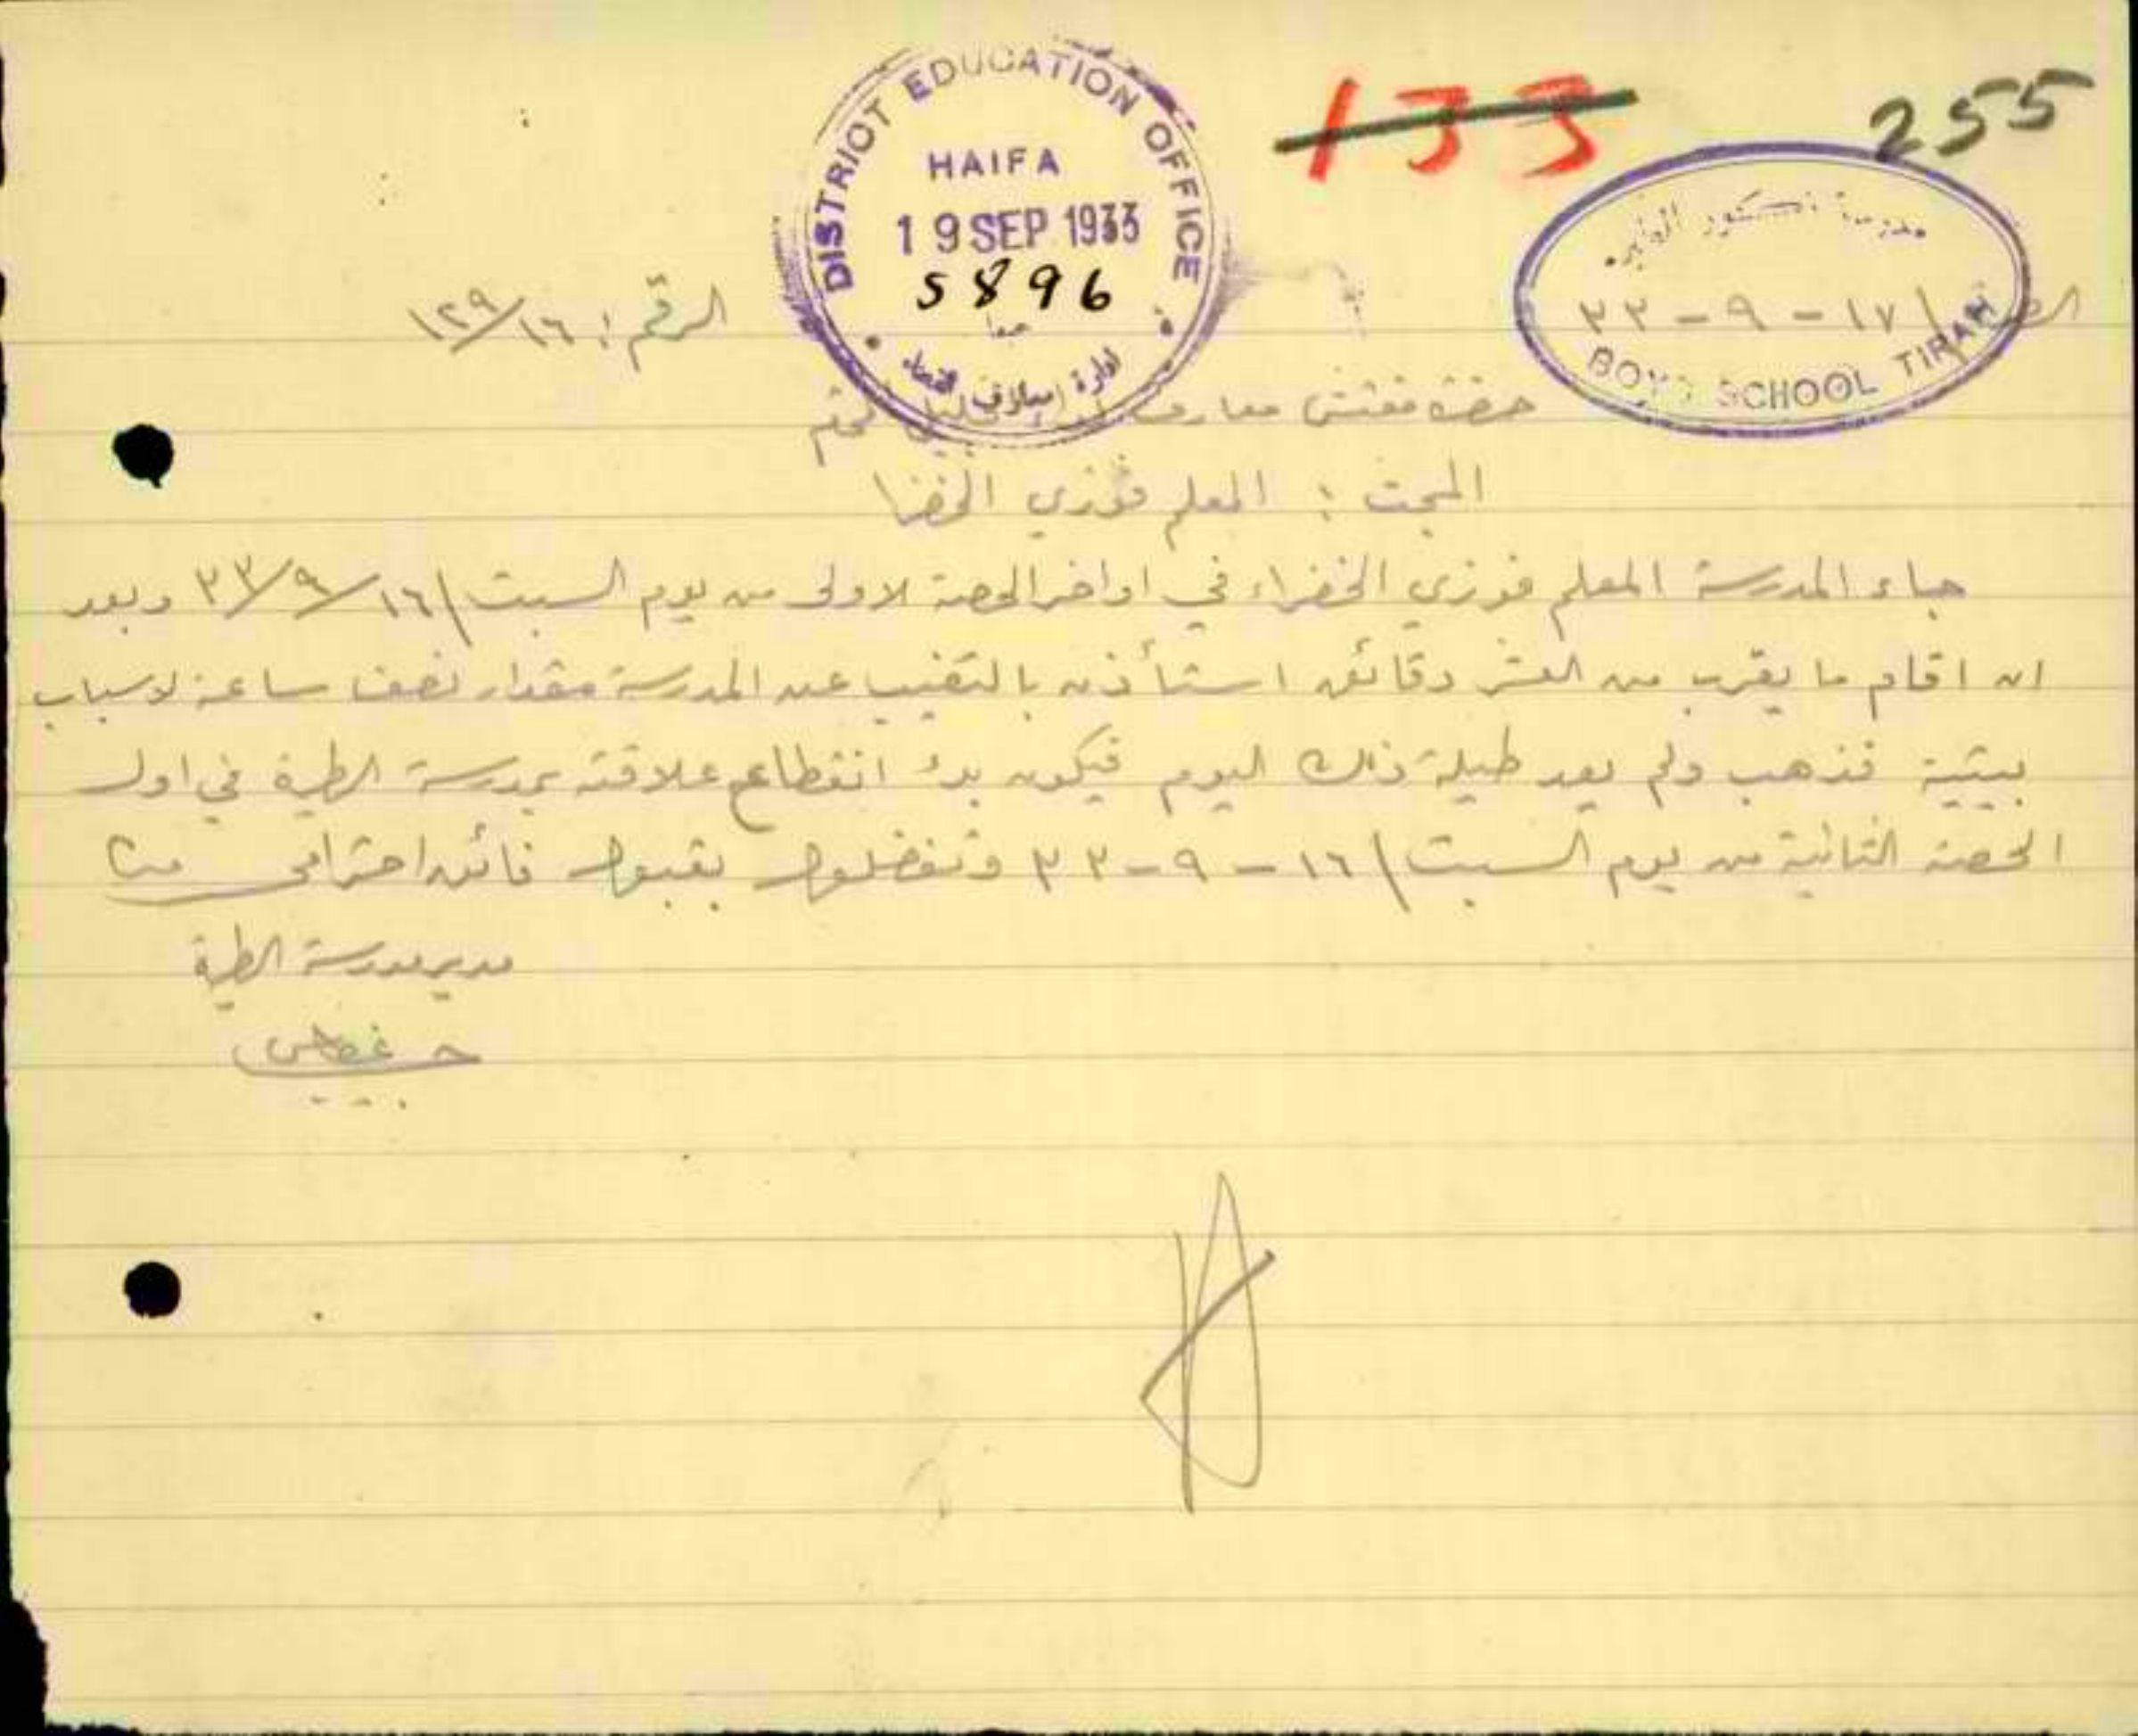 133
255
DISTRICT EDUCATION OFFICE
HAIFA
19 SEP 1933
5896
ادارة معارف
مدرسة
BOYS SCHOOL TIRAH
١٧ - ٩ - ٣٣
الرقم : ١٢٩/١٦
حضرة مفتش معارف
المبحث : المعلم فوزي الخضرا
جاء المدرسة المعلم فوزي الخضراء في اواخر الحصة الاولى من يوم السبت \ ١٦/٩/٣٣ وبعد
ان اقام ما يقرب من العشر دقائق استأذن بالتغيب عن المدرسة مقدار نصف ساعة لاسباب
بيتية فذهب ولم يعد طيلة ذلك اليوم فيكون بدء انقطاع علاقته بمدرسة الطيرة في اول
الحصة الثانية من يوم السبت \ ١٦ - ٩ - ٣٣ وتفضلوا بقبول فائق احترامي
مدير مدرسة الطيرة